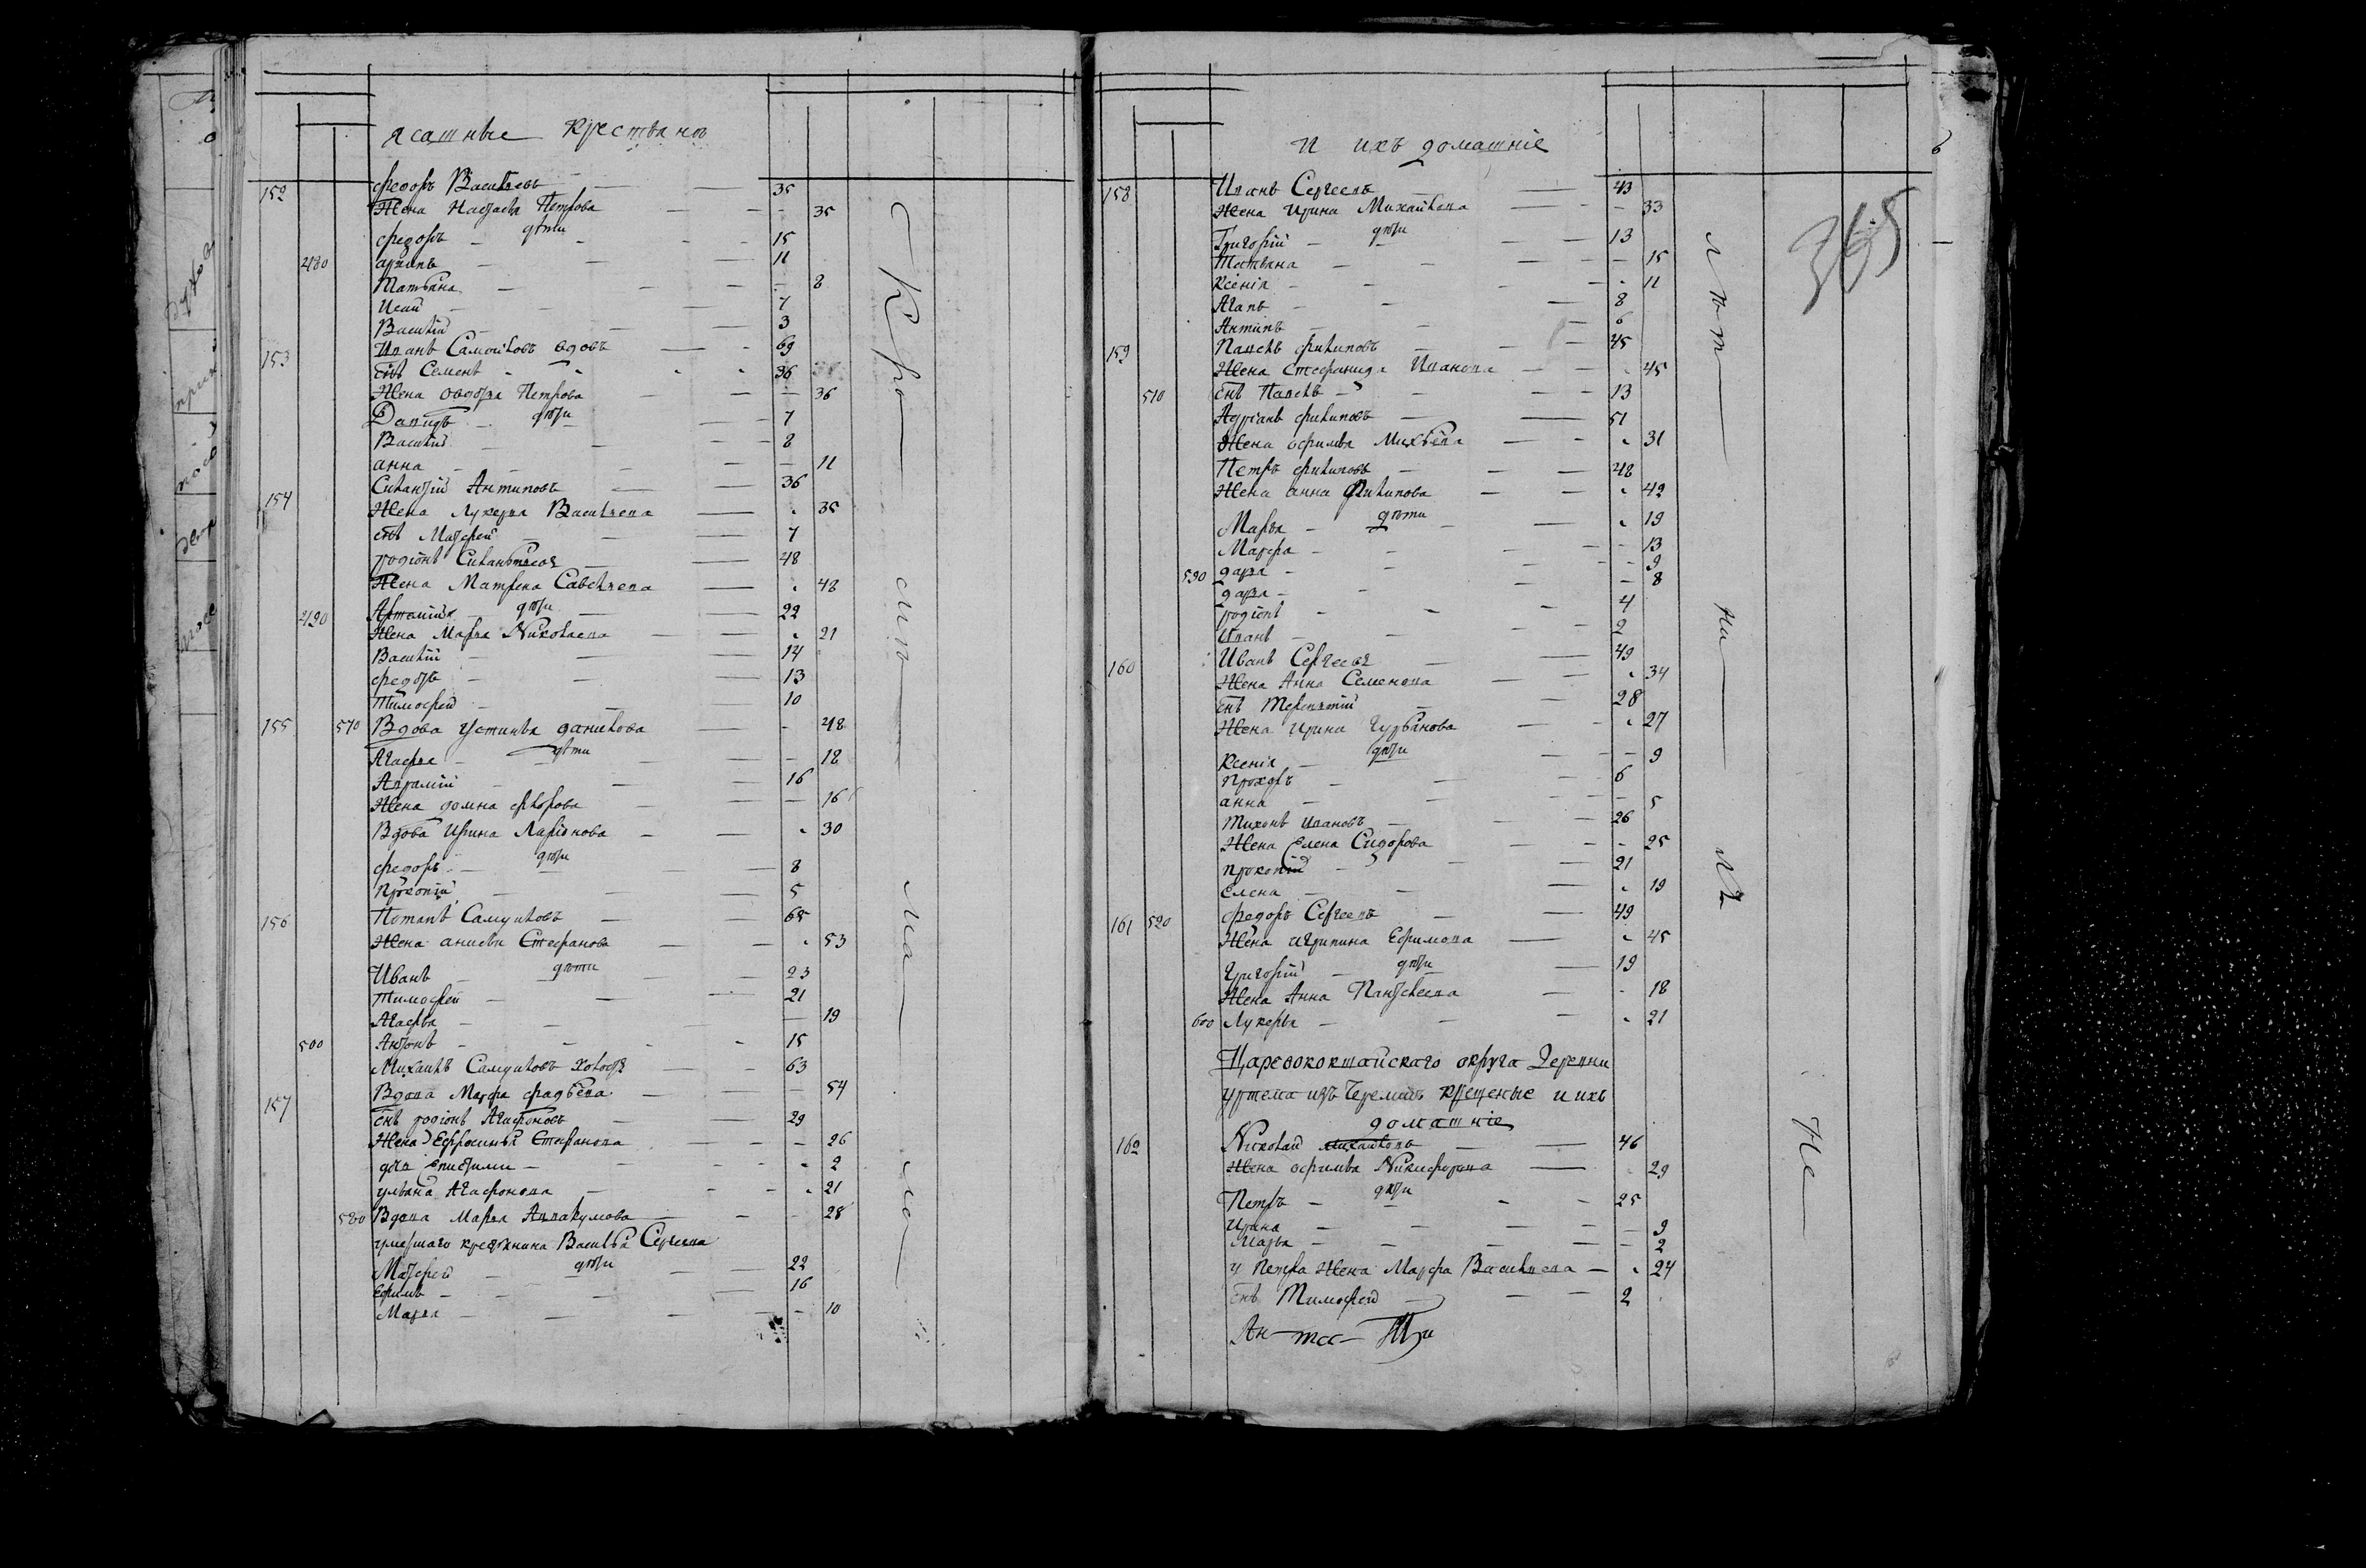 ясашные крестьянъ
152 федоръ Васильевъ 35
Жена Настасья Петрова 35
дѣти
федоръ 15
480 архипъ 11
Татьяна 8
Исай 7
Василій 3
153 Иванъ Самойловъ вдовъ 69
снъ Семенъ 36
Жена овдотья Петрова 36
дѣти
Давидъ 7
Василий 8
анна 11
154 Силантій Антиповъ 36
Жена Лукерья Васильева 35
снъ Матфей 7
родіонъ Силантьевъ 48
Жена Матрена Савельева 48
дѣти
490 Артемій 22
Жена Марья Николаева 21
Василій 14
федоръ 13
Тимофей 10
155 570 Вдова устинья данилова 48
дѣти
Агафья 18
Авраамій 16
Жена домна флорова 16
Вдова Ирина Ларіонова 30
дѣти
федоръ 8
Прокопій 5
156 Потапъ Самуиловъ 65
Жена анисья Стефанова 53
дѣти
Иванъ 23
Тимофей 21
Агафья 19
500 Антонъ 15
Михаилъ Самуиловъ холостъ 63
157 Вдова Марфа фадѣева 54
снъ родіонъ Агафоновъ 29
Жена Ефросинья Стефанова 26
дочь Епистими 2
ульяна Агафонова 21
580 Вдова Марья Аввакумова 28
умершаго крестьянина Василья Сергеева
дѣти
Матфей 22
Ефимъ 16
Марья 10
Кро
сит
ма
ла
и ихъ домашніе
365
6
158 Иванъ Сергеевъ 43
Жена Ирина Михайлова 33
дѣти
Григорій 13
Татьяна 15
Ксенія 11
Агапъ 8
Антипъ 6
159 Павелъ филиповъ 45
Жена Стефанида Иванова 45
510 снъ Павелъ 13
Адріанъ филиповъ 51
Жена офимья Михѣева 31
Петръ филиповъ 48
Жена анна Филипова 42
дѣти
Марья 19
Марфа 13
590 дарья 9
дарья 8
родіонъ 4
Иванъ 2
160 Иванъ Сергеевъ 49
Жена Анна Семенова 34
снъ Терентій 28
Жена Ирина Гурьянова 27
дѣти
Ксенія 9
Прохоръ 6
анна 5
Тихонъ Ивановъ 26
Жена Елена Сидорова 25
прокопій 21
Елена 19
161 520 федоръ Сергеевъ 49
Жена агрипина Ефимова 45
дѣти
Григорій 19
Жена Анна Пантелеева 18
600 Лукерья 21
Царевококшайскаго округа Деревни
уртема изъ Черемисъ крещеные и ихъ
домашніе
162 Николай Михайловъ 46
Жена офимья Никифорова 29
дѣти
Петръ 25
Ирина 9
Марья 2
у Петра Жена Марфа Васильева 24
снъ Тимофей 2
на
Не